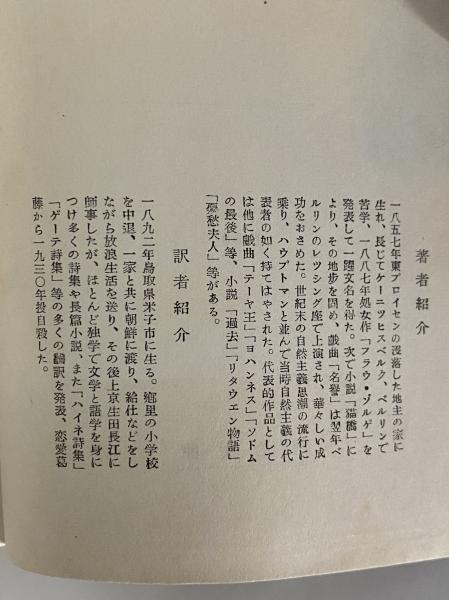 著者紹介
一八五七年東プロイセンの没落した地主の家に
生れ、長じてケーニッヒスベルク、ベルリンで
苦学、一八八七年処女作「フラウ・ゾルゲ」を
発表して一躍文名を得た。次で小説「猫橋」に
より、その地歩を固め、戯曲「名誉」は翌年ベ
ルリンのレッシング座で上演され、華々しい成
功をおさめた。世紀末の自然主義思潮の流行に
乗り、ハウプトマンと並んで当時自然主義の代
表者の如く持てはやされた。代表的作品として
は他に戯曲「テーヤ王」「ヨハンネス」「ソドム
の最後」等、小説「過去」「リタウエン物語」
「憂愁夫人」等がある。
訳者紹介
一八九二年鳥取県米子市に生る。郷里の小学校
を中退、一家と共に朝鮮に渡り、給仕などをし
ながら放浪生活を送り、その後上京生田長江に
師事したが、ほとんど独学で文学と語学を身に
つけ多くの詩集や長篇小説、また「ハイネ詩集」
「ゲーテ詩集」等の多くの翻訳を発表、恋愛葛
藤から一九三〇年投身自殺した。